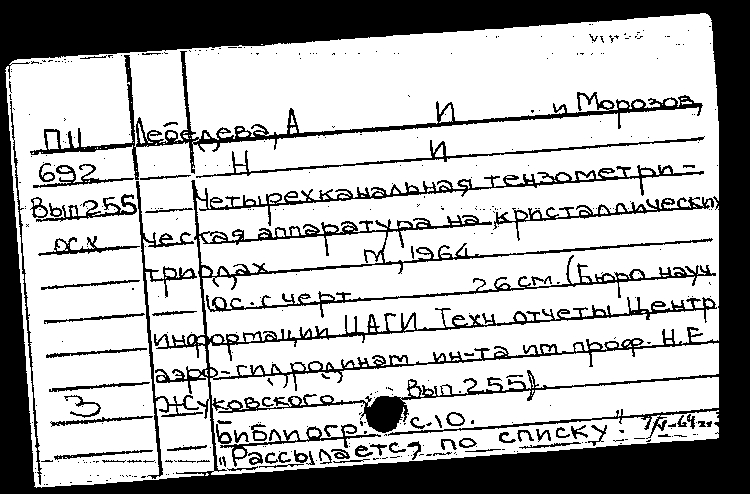 П11 Лебедева, А И и Морозов,
692 Н И
Вып 255 Четырехканальная тензометри-
ос.х ческая аппаратура на кристаллических
триодах М., 1964.
10с. с черт. 26 см. (Бюро науч
информации ЦАГИ. Техн отчеты Центр
аэро-гидродинам. ин-та им. проф. Н.Е.
3 Жуковского. Вып. 255).
Библиогр: с.10.
"Рассылается по списку".